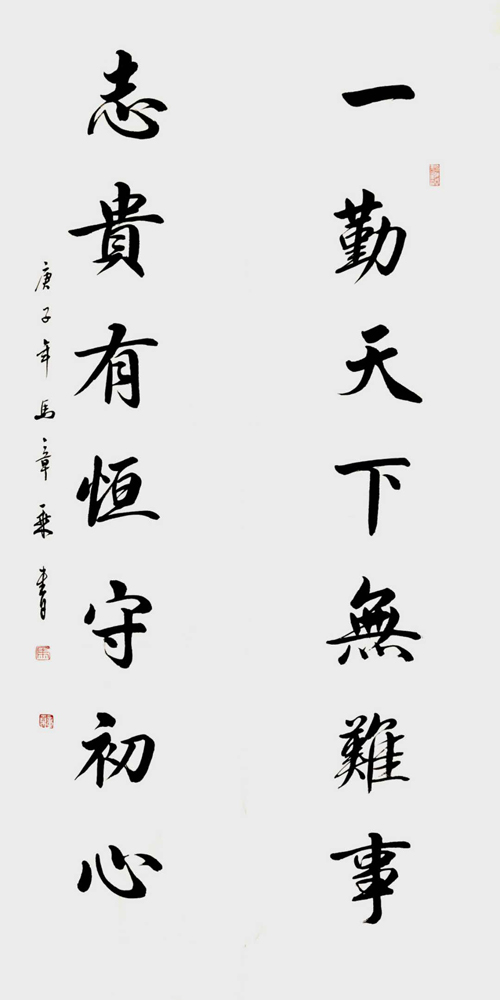 一勤天下無難事
志貴有恒守初心
庚子年馬章乘書